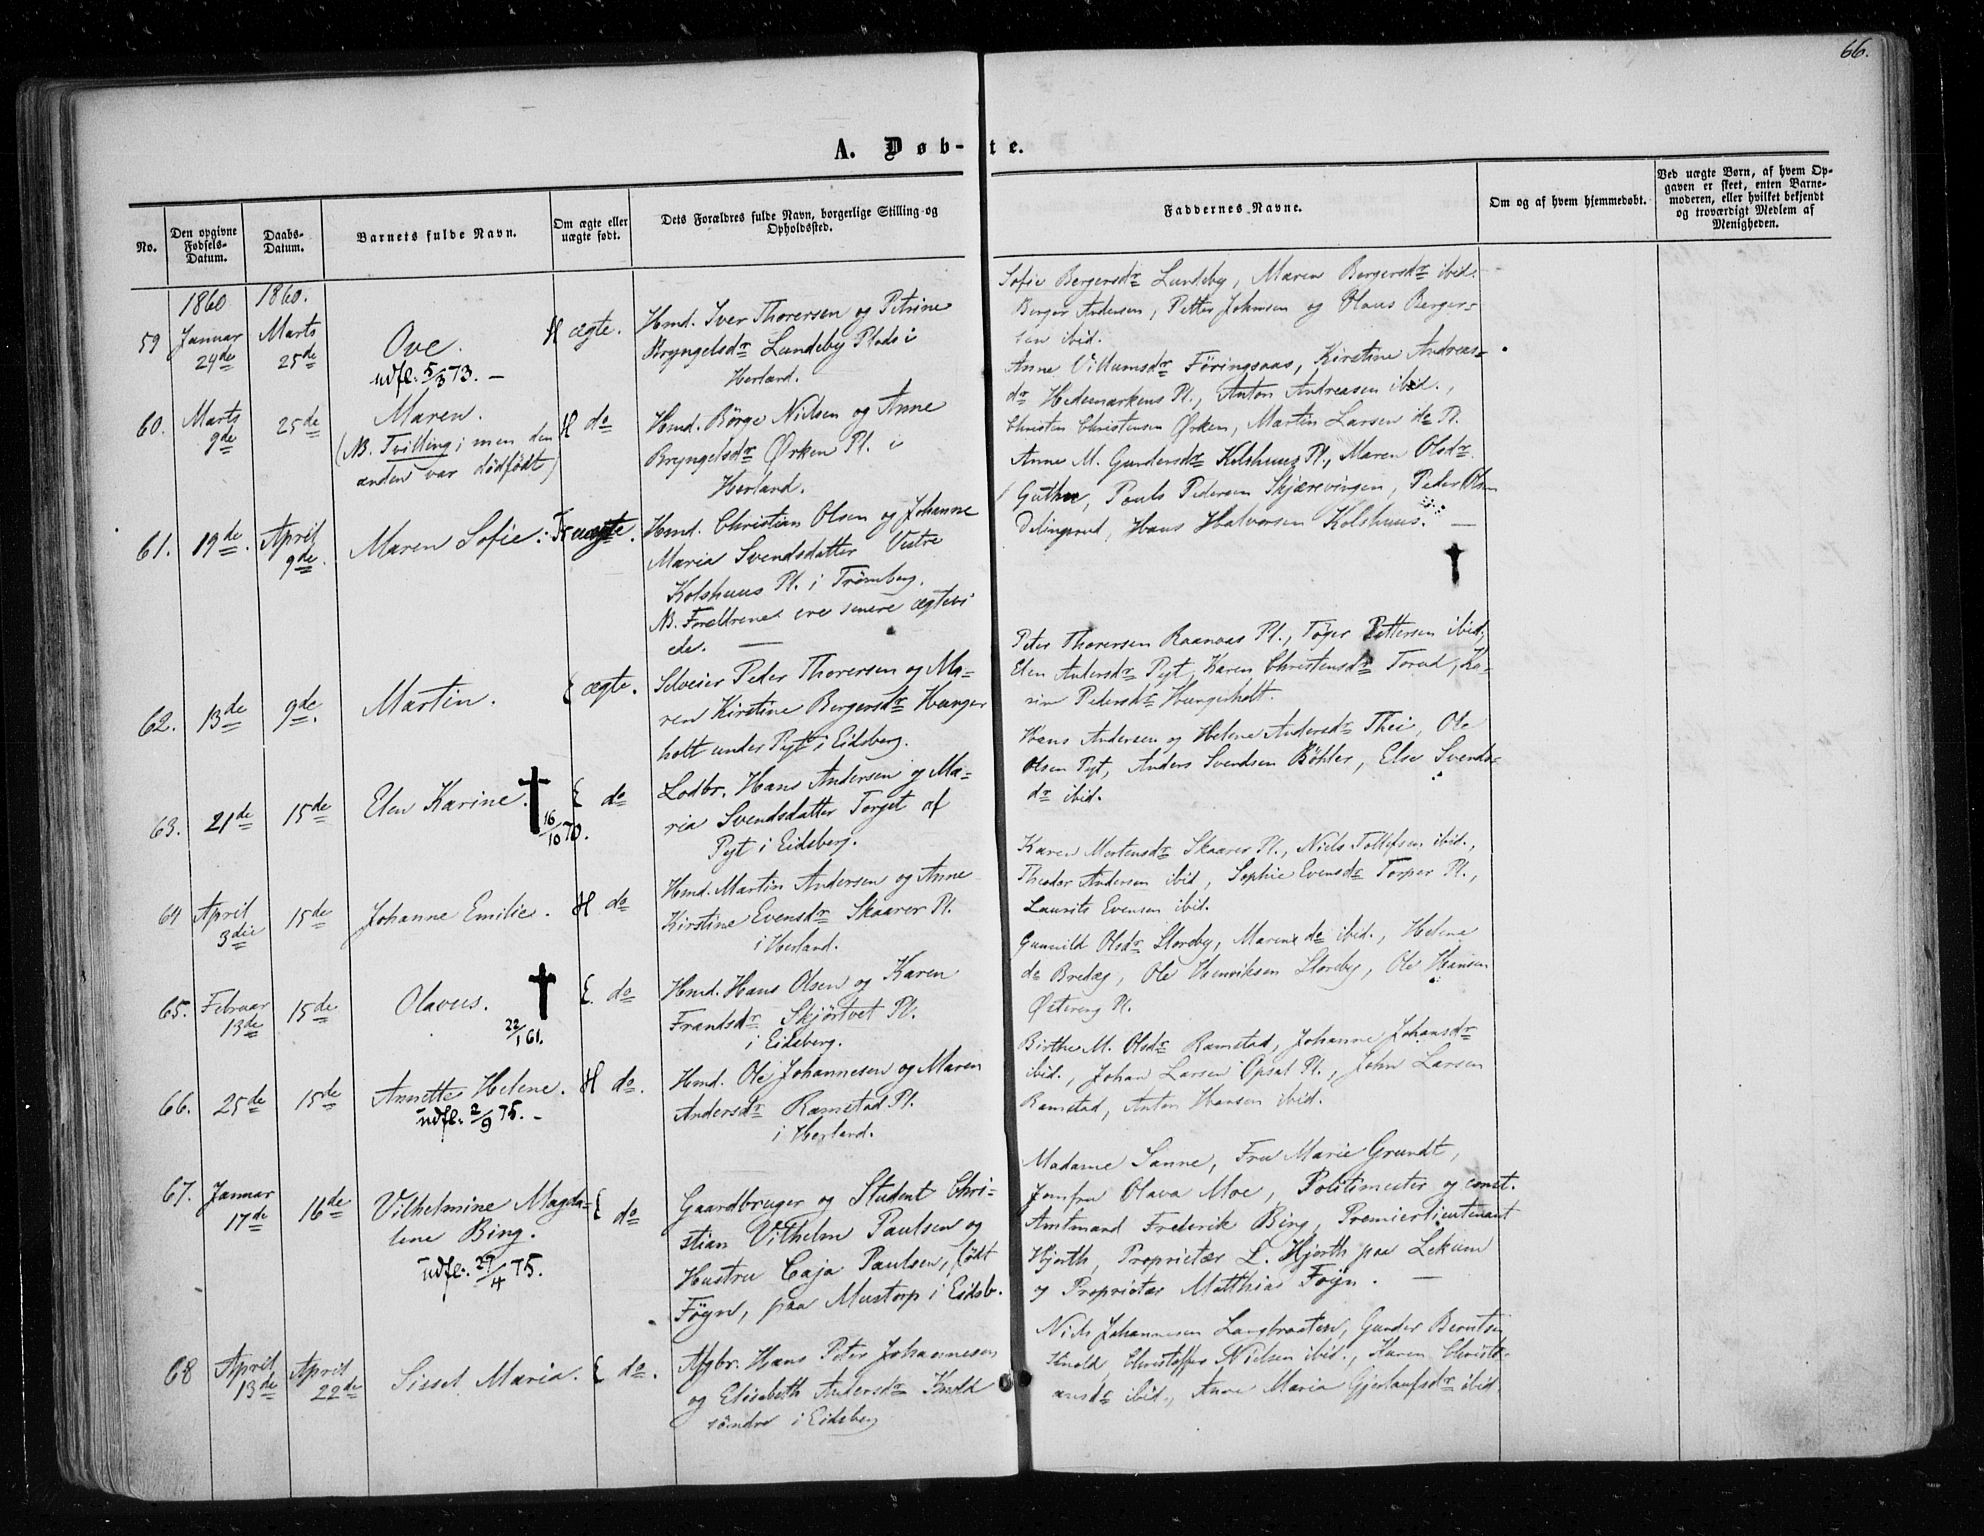 66.
A. Døb- te.
No.
Den opgivne Fødsels-Datum.
Daabs-Datum.
Barnets fulde Navn.
Om ægte eller uægte født.
Dets Forældres fulde Navn, borgerlige Stilling og Opholdssted.
Faddernes Navne.
Om og af hvem hjemmedøbt.
Ved uægte Børn, af hvem Opgaven er skeet, enten Barnemoderen, eller hvilket bekjendt og troværdigt Medlem af Menigheden.
1860 1860.
59 Januar 24de Marts 25de
Ove.
udfl. 5/3 73. —
H ægte.
Hmd. Iver Thorersen og Petrine
Bryngelsdr Lundeby Plads i
Herland.
Sofie Bergersdr Lundeby, Maren Bergersdr ibid.
Berger Andersen, Petter Johnsen og Olaus Berger-
sen ibid.
60. Marts 9de 25de
Maren.
(NB. Tvilling; men den
anden var dödfödt)
H do
Hmd. Börge Nielsen og Anne
Bryngelsdr Ørken Pl. i
Herland.
Anne Villumsdr Föringsaas, Kirstine Andreas-
dr Hedemarkens Pl., Anton Andreasen ibid.,
Christen Christensen Ørken, Martin Larsen do Pl.
61. 19de. April 9de.
Maren Sofie.
Tr uægte.
Hmd. Christian Olsen og Johanne
Maria Svendsdatter Vestre
Kolshuus Pl. i Trömborg.
NB. Foreldrene ere senere ægtevi
ede. —
Anne M. Gundersdr Kolshuus Pl., Maren Olsdr
Guthu, Pouls Pedersen Skjærevingen, Peder Olsen
Delingsrud, Hans Halvorsen Kolshuus. —
62. 13de 9de.
Martin.
E ægte.
Selveier Peder Thorersen og Ma-
ren Kirstine Bergersdr Hunger
holt under Pyt i Eidsberg.
Peter Thorersen Raanaas Pl., Töger Pettersen ibid,
Elen Andersdr Pyt, Karen Christensdr Torud, Ka-
rin Pedersdr Hungerholt.
63. 21de 15de
Elen Karine.
16/10 70.
E do
Lodbr. Hans Andersen og Ma-
ria Svendsdatter Torget af
Pyt i Eidsberg.
Hans Andersen og Helene Andersdr Thei, Ole
Olsen Pyt, Anders Svendsen Böhler, Else Svends-
dr ibid.
64 April 3die 15de
Johanne Emilie.
H do
Hmd. Martin Andersen og Anne
Kirstine Evensdr Skaarer Pl.
i Herland.
Karen Mortensdr Skaarer Pl., Niels Tollefsen ibid.,
Theodor Andersen ibid, Sophie Evensdr Torper Pl.,
Laurits Evensen ibid.
65. Februar 13de 15de
Olavus.
22/1 61.
E. do
Hmd. Hans Olsen og Karen
Frantsdr Skjörtvet Pl.
i Eidsberg.
Gunnild Olsdr Storeby, Maren do ibid., Helene
do Bredeg, Ole Henriksen Storeby, Ole Hansen
Østereng Pl.
66. 25de 15de
Annette Helene.
udfl. 2/9 75. -
H do.
Hmd. Ole Johannesen og Maren
Andersdr Ramstad Pl.
i Herland.
Birthe M. Olsdr Ramstad, Johanne Johansdr
ibid., Johan Larsen Opsal Pl., John Larsen
Ramstad, Anton Hansen ibid.
67. Januar 17de 16de
Vilhelmine Magda-
lene Bing.
udfl. 27/4 75.
E do
Gaardbruger og Student Chri-
stian Vilhelm Paulsen og
Hustru Caja Paulsen, födt
Föyn, paa Mustorp i Eidsb.
Madame Sanne, Fru Marie Grundt,
Jomfru Olava Moe, Politimester og const.
Amtmand Frederik Bing, Premierlieutenant
Hjorth, Proprietær L. Hjorth paa Lekum
og Proprietær Matthias Föyn. —
68 April 13de April 22de
Sissel Maria.
E do.
Afgbr. Hans Peter Johannesen
og Elisabeth Andersdr Knold
söndre i Eidsberg
Niels Johannesen Langbraaten, Gunder Berntsen
Knold, Christoffer Nielsen ibid., Karen Christi-
ansdr ibid., Anne Maria Gjerlaufsdr ibid.